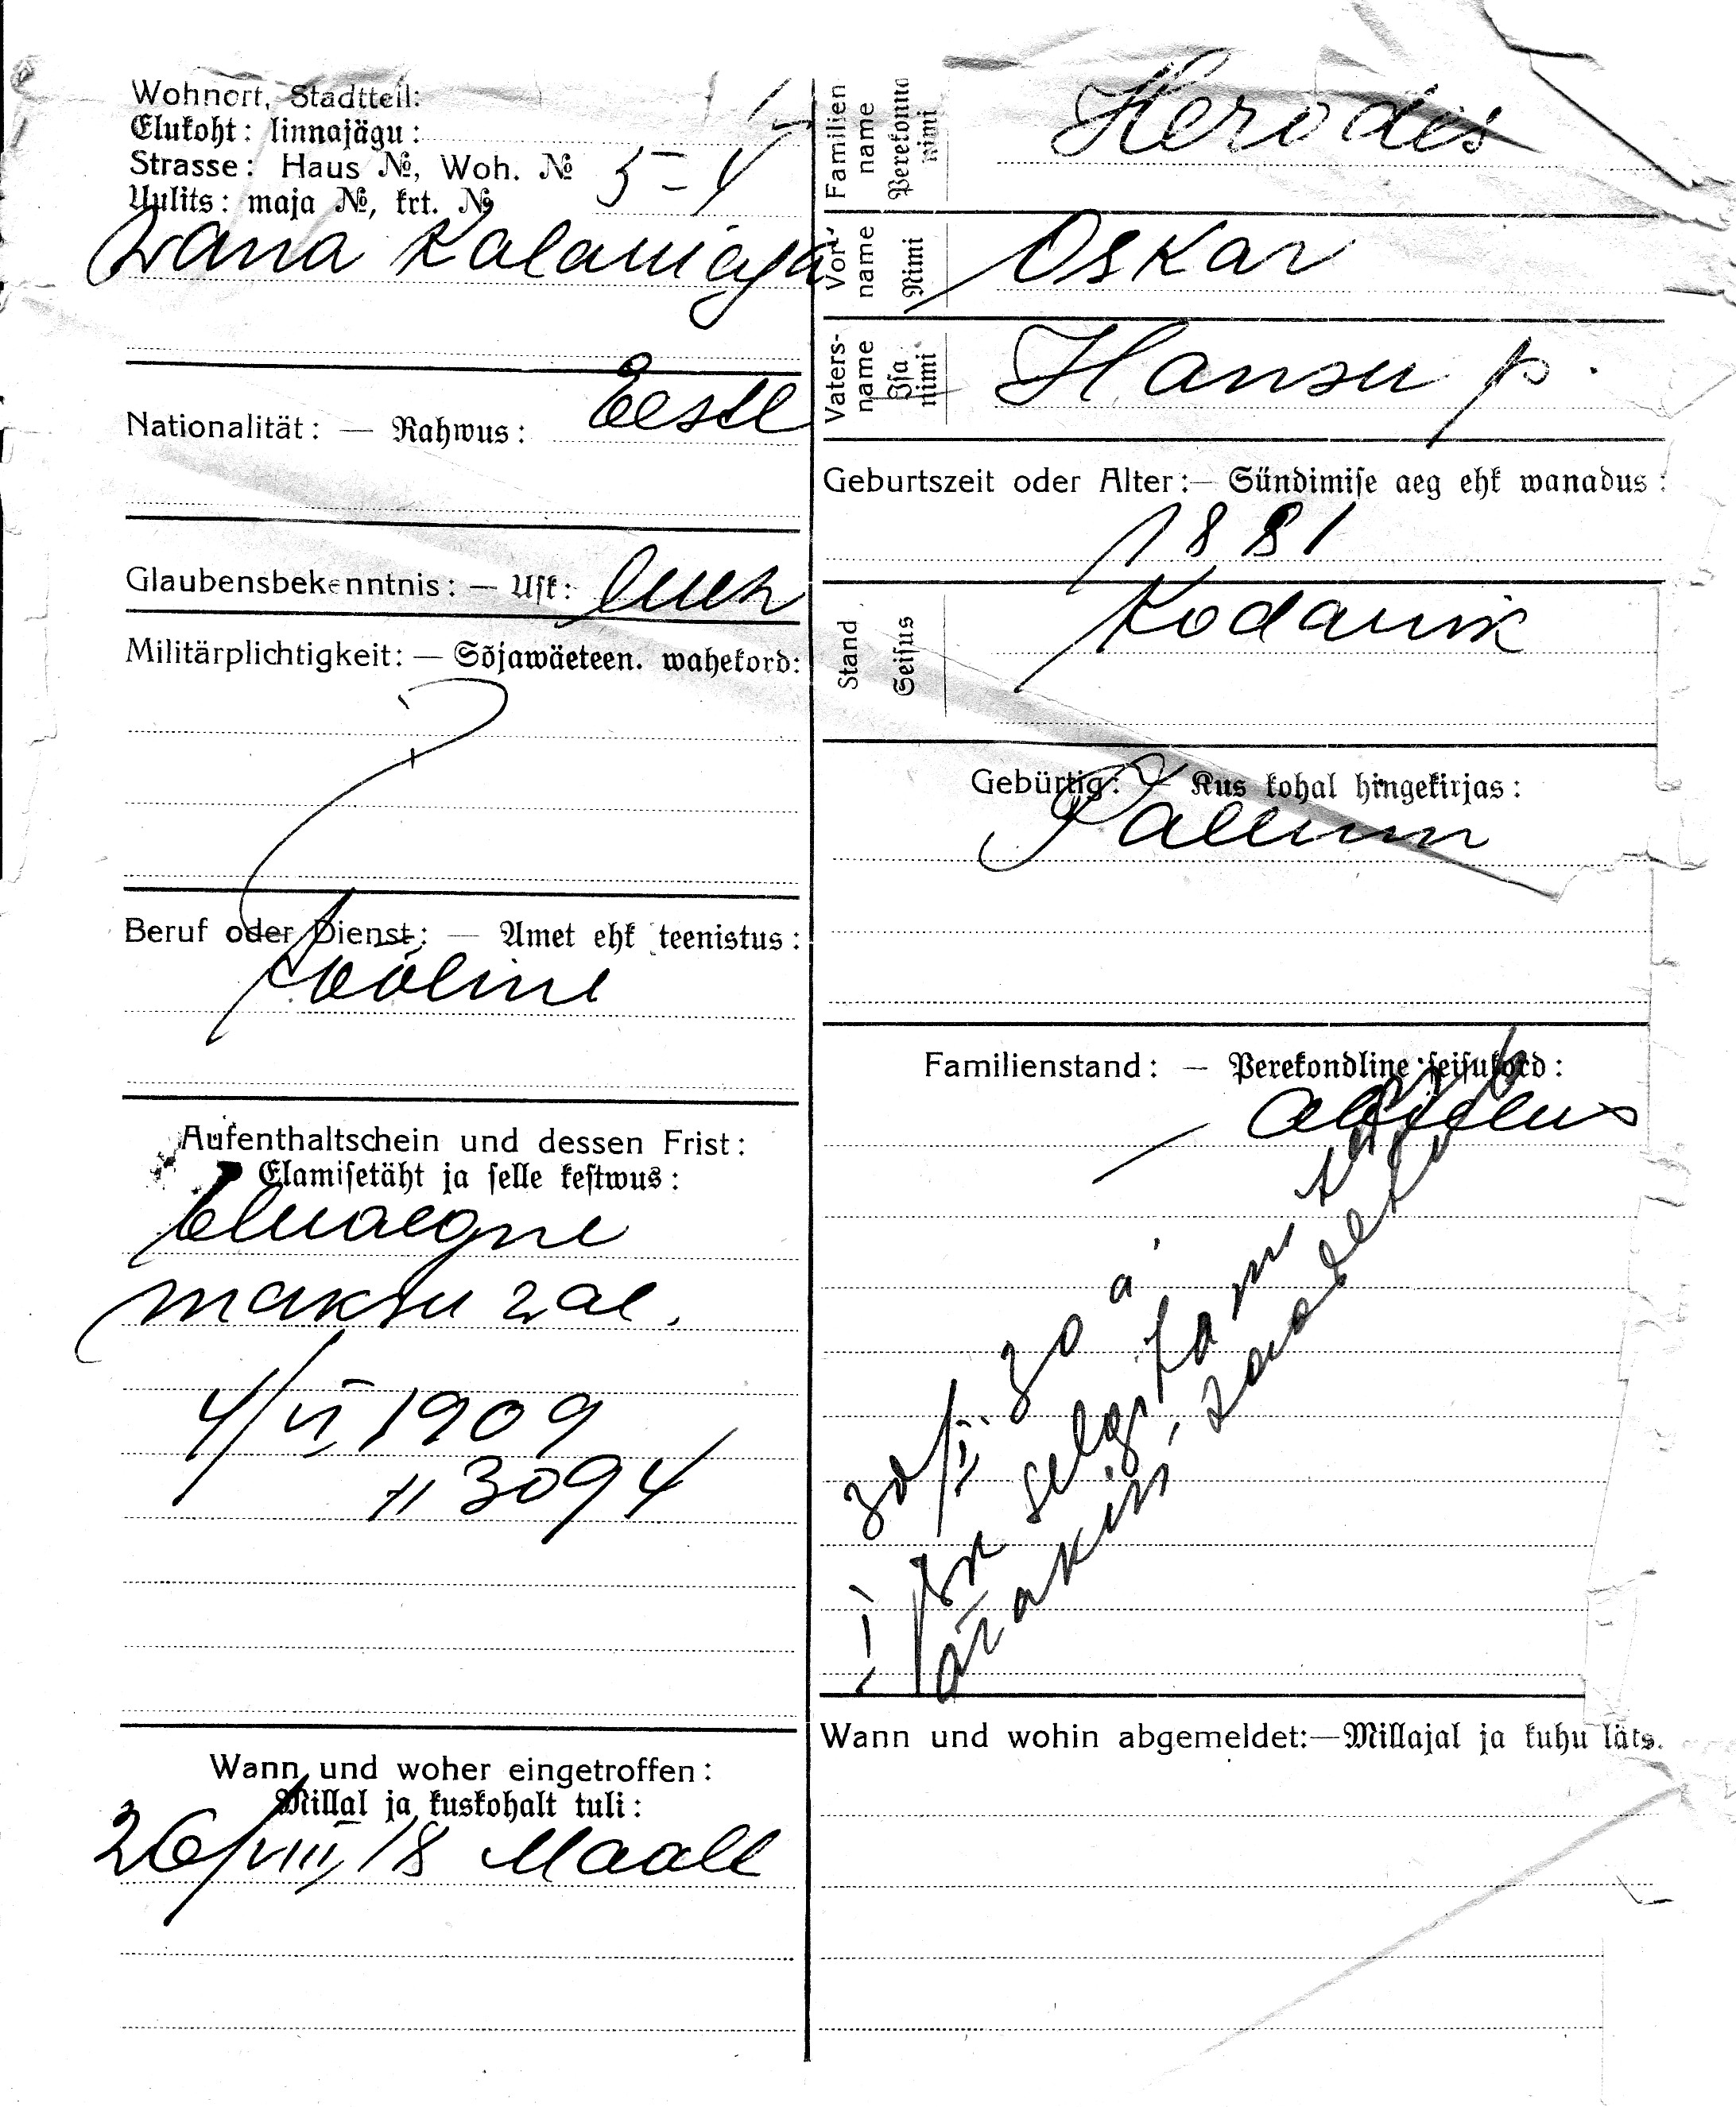 Wohnort, Stadtteil:
Elukoht: linnajägu:
Strasse: Haus №, Woh. № 5-4
Uulits: maja №, krt. №
Wana Kalamaja
Nationalität: — Rahwus: Eesti
Glaubensbekenntnis: — Usk: luth
Militärplichtigkeit: — Sõjawäeteen. wahekord:
Beruf oder Dienst: — Amet ehk teenistus:
tööline
Aufenthaltschein und dessen Frist:
Elamisetäht ja selle kestwus:
Eluaegne
maksu wal.
4/VI 1909
3094
Wann und woher eingetroffen:
Millal ja kuskohalt tuli:
26/VIII 18 Maalt
Familien
name
Perekonna
nimi
Herodes
Vor-
name
Nimi
Oskar
Vaters-
name
Isa
nimi
Hansu p.
Geburtszeit oder Alter:— Sündimise aeg ehk wanadus:
1881
Stand
Seisus
Kodanik
Gebürtig: — Kus kohal hingekirjas:
Tallinn
Familienstand: — Perekondline seisukord:
abielus
30/I. 30 a.
Wann und wohin abgemeldet:—Millajal ja kuhu läts.